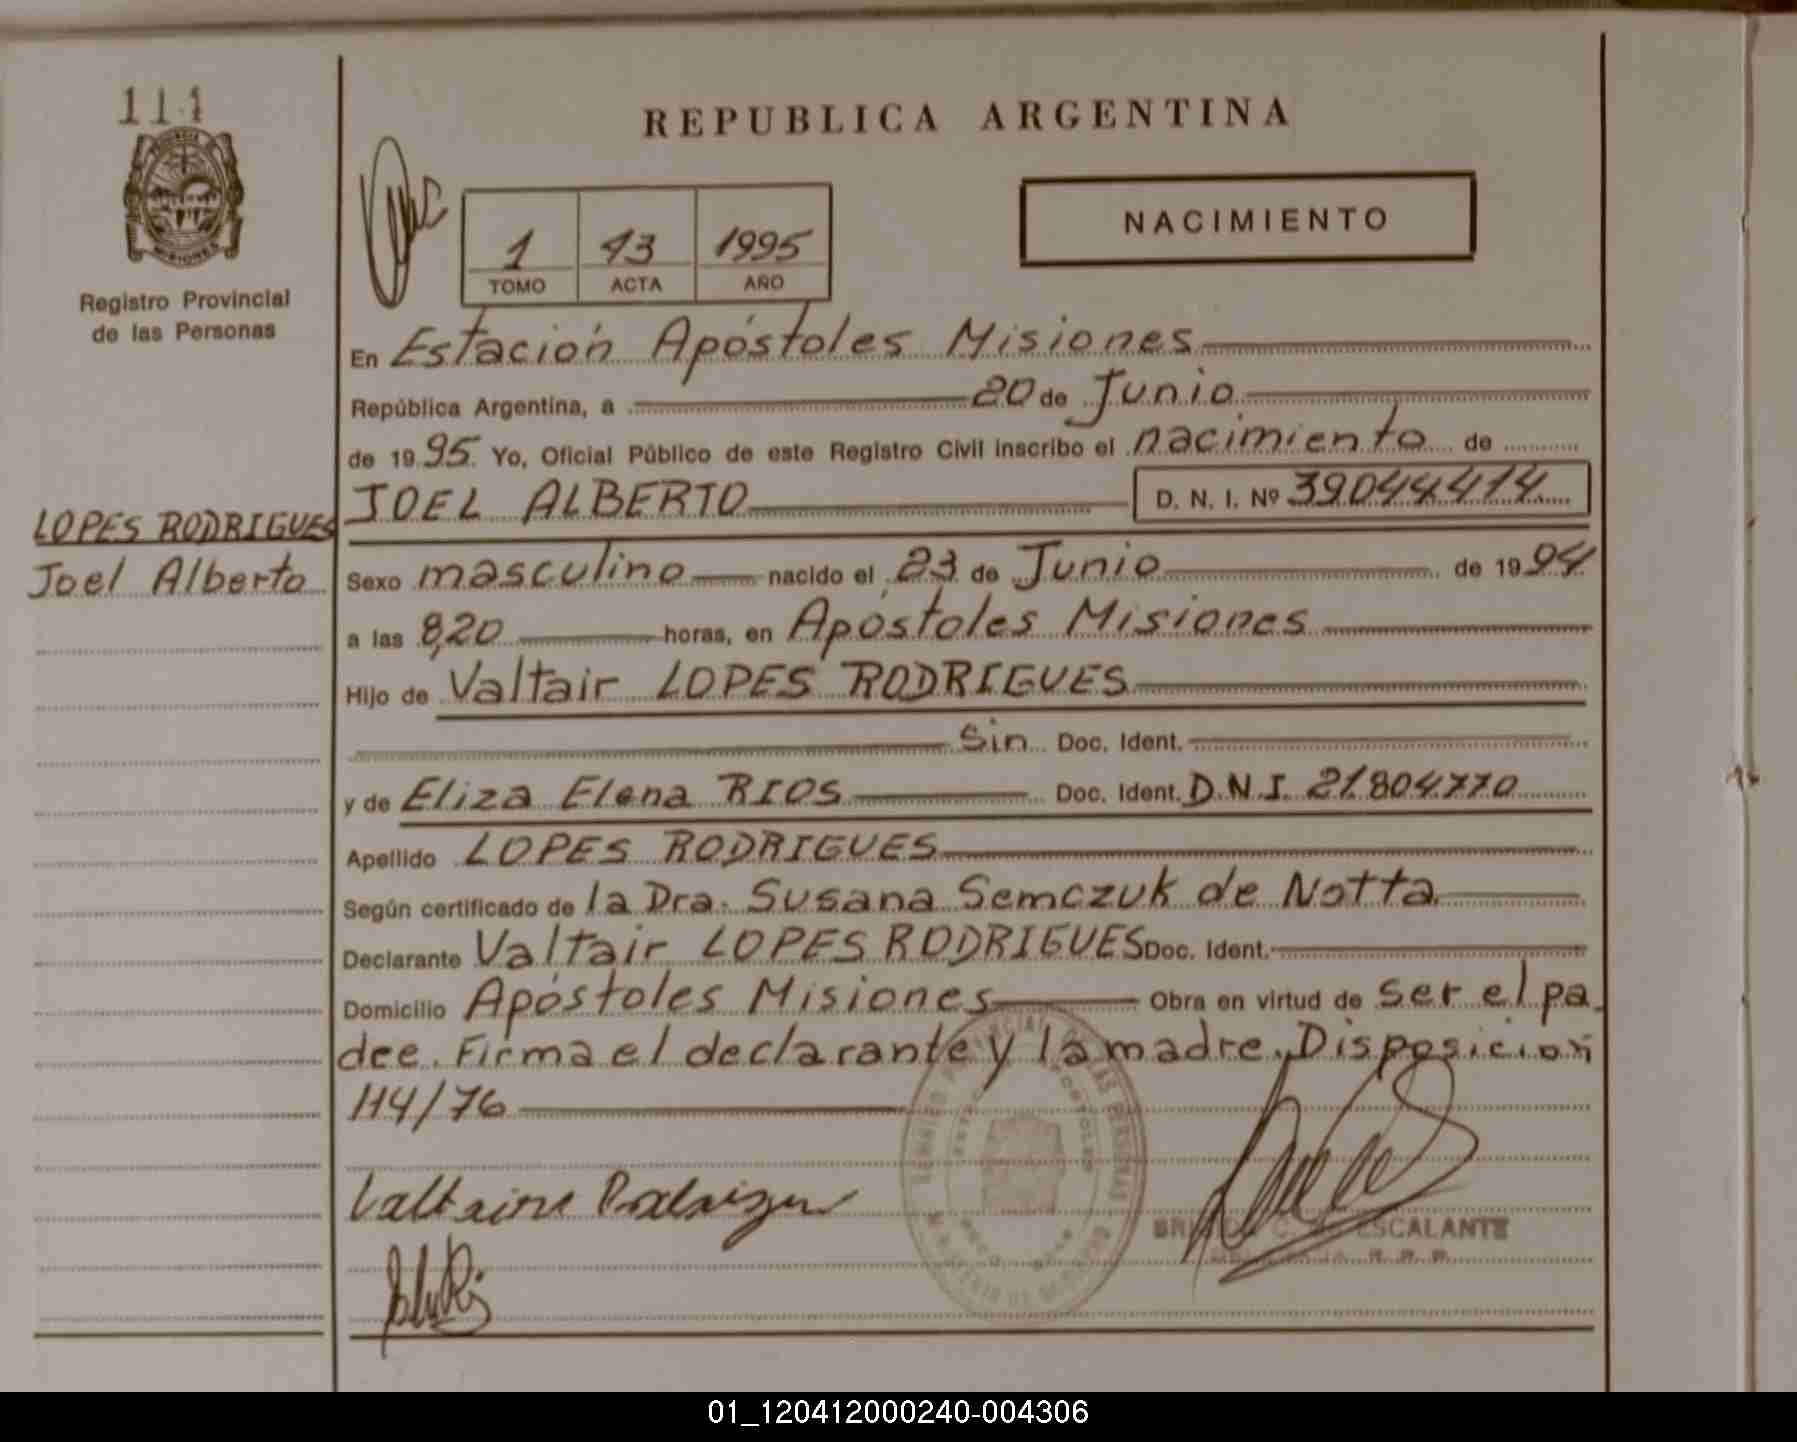 111
REPUBLICA ARGENTINA
NACIMIENTO
1 TOMO
43 ACTA
1995 AÑO
MISIONES
Registro Provincial
de las Personas
En Estación Apóstoles Misiones
República Argentina, a 20 de Junio
de 1995 Yo, Oficial Público de este Registro Civil inscribo el nacimiento de
JOEL ALBERTO D. N. I. Nº 39044414
LOPES RODRIGUES
Joel Alberto
Sexo masculino nacido el 23 de Junio de 1994
a las 8,20 horas, en Apóstoles Misiones
Hijo de Valtair LOPES RODRIGUES
Sin Doc. Ident.
y de Eliza Elena RIOS Doc. Ident. D.N.I. 21.804.770
Apellido LOPES RODRIGUES
Según certificado de la Dra. Susana Semczuk de Notta
Declarante Valtair LOPES RODRIGUES Doc. Ident.
Domicilio Apóstoles Misiones Obra en virtud de ser el pa
dre. Firma el declarante y la madre. Disposición
114/76
ESCALANTE
01_120412000240-004306